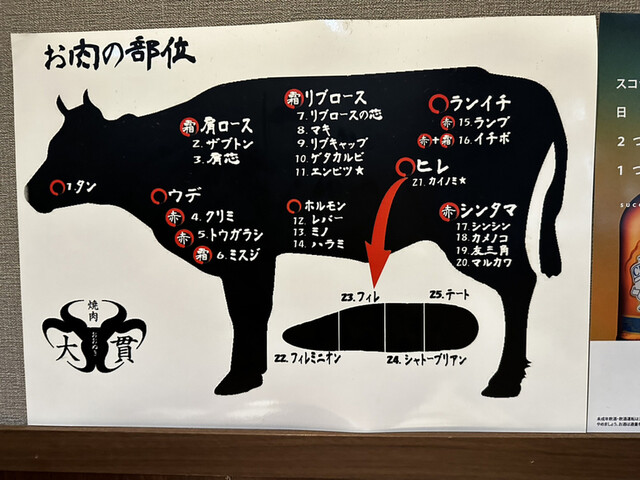 お肉の部位
霜 肩ロース
2. ザブトン
3. 肩芯
霜 リブロース
7. リブロースの芯
8. マキ
9. リブキャップ
10. ゲタカルビ
11. エンピツ★
ランイチ
赤 15. ランプ
赤+霜 16. イチボ
ヒレ
21. カイノミ★
1. タン
ウデ
赤 4. クリミ
赤 5. トウガラシ
霜 6. ミスジ
ホルモン
12. レバー
13. ミノ
14. ハラミ
赤 シンタマ
17. シンシン
18. カメノコ
19. 友三角
20. マルカワ
23. フィレ
25. テート
22. フィレミニオン
24. シャトーブリアン
焼肉
大貫
おおぬき
スコ
日
2つ
1つ
succ